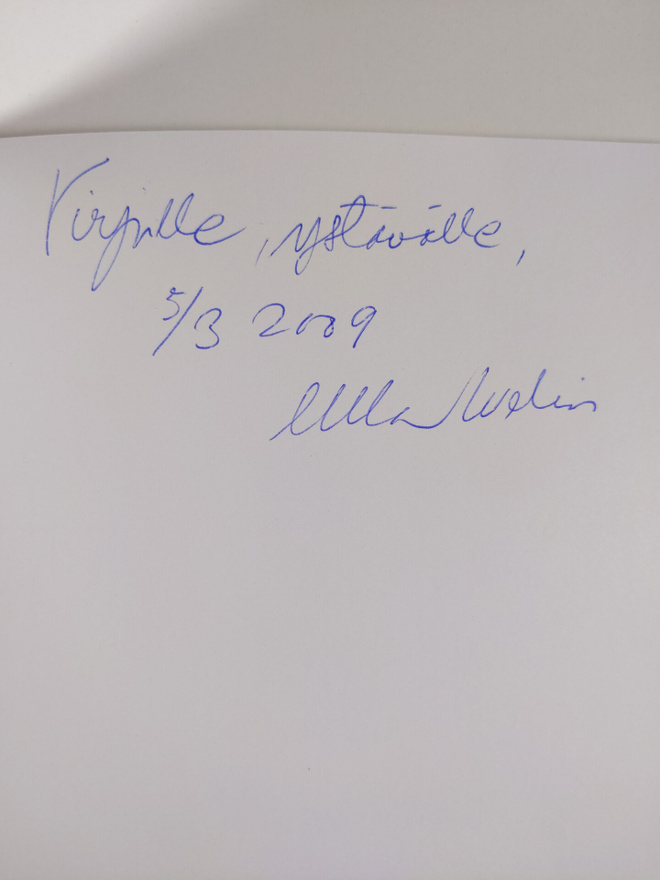 Virpille, ystävälle,
5/3 2009
Ulla